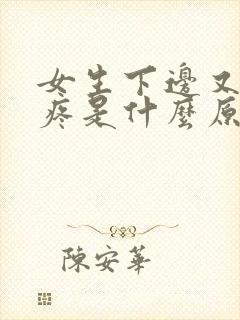 女生下邊又
疼是什麼原
陳安華